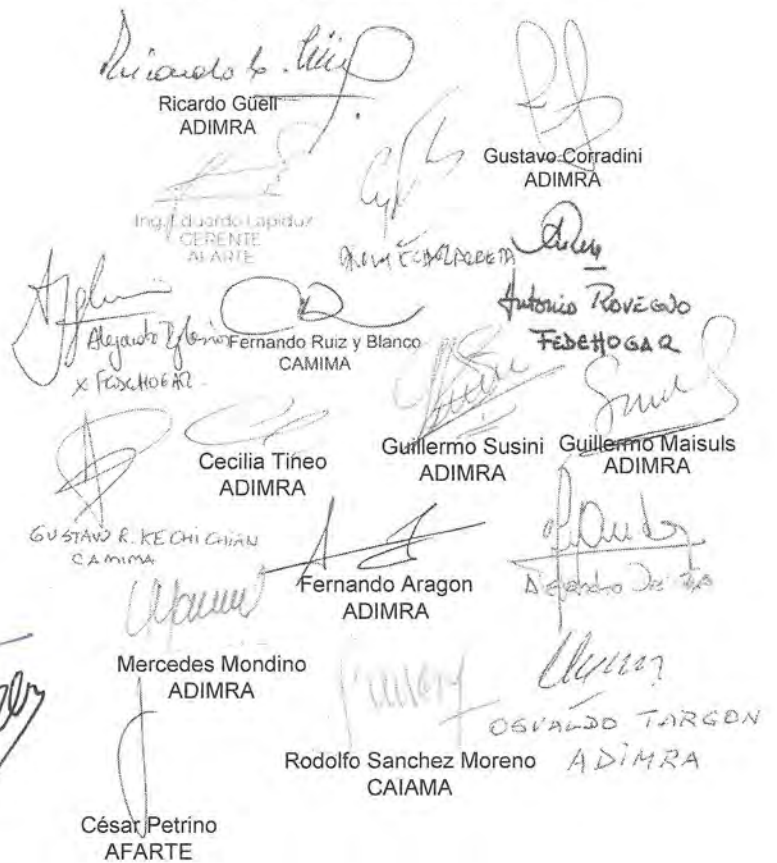 Ricardo Güell
ADIMRA
Gustavo Corradini
ADIMRA
Ing. Eduardo Lapiduz
GERENTE
AFARTE
Antonio Rovegno
FEDEHOGAR
Alejandro Iglesias
x FEDEHOGAR
Fernando Ruiz y Blanco
CAMIMA
Cecilia Tineo
ADIMRA
Guillermo Susini
ADIMRA
Guillermo Maisuls
ADIMRA
GUSTAVO R. KECHICHIAN
CAMIMA
Fernando Aragon
ADIMRA
Alejandro
Mercedes Mondino
ADIMRA
Rodolfo Sanchez Moreno
CAIAMA
OSVALDO TARGON
ADIMRA
César Petrino
AFARTE